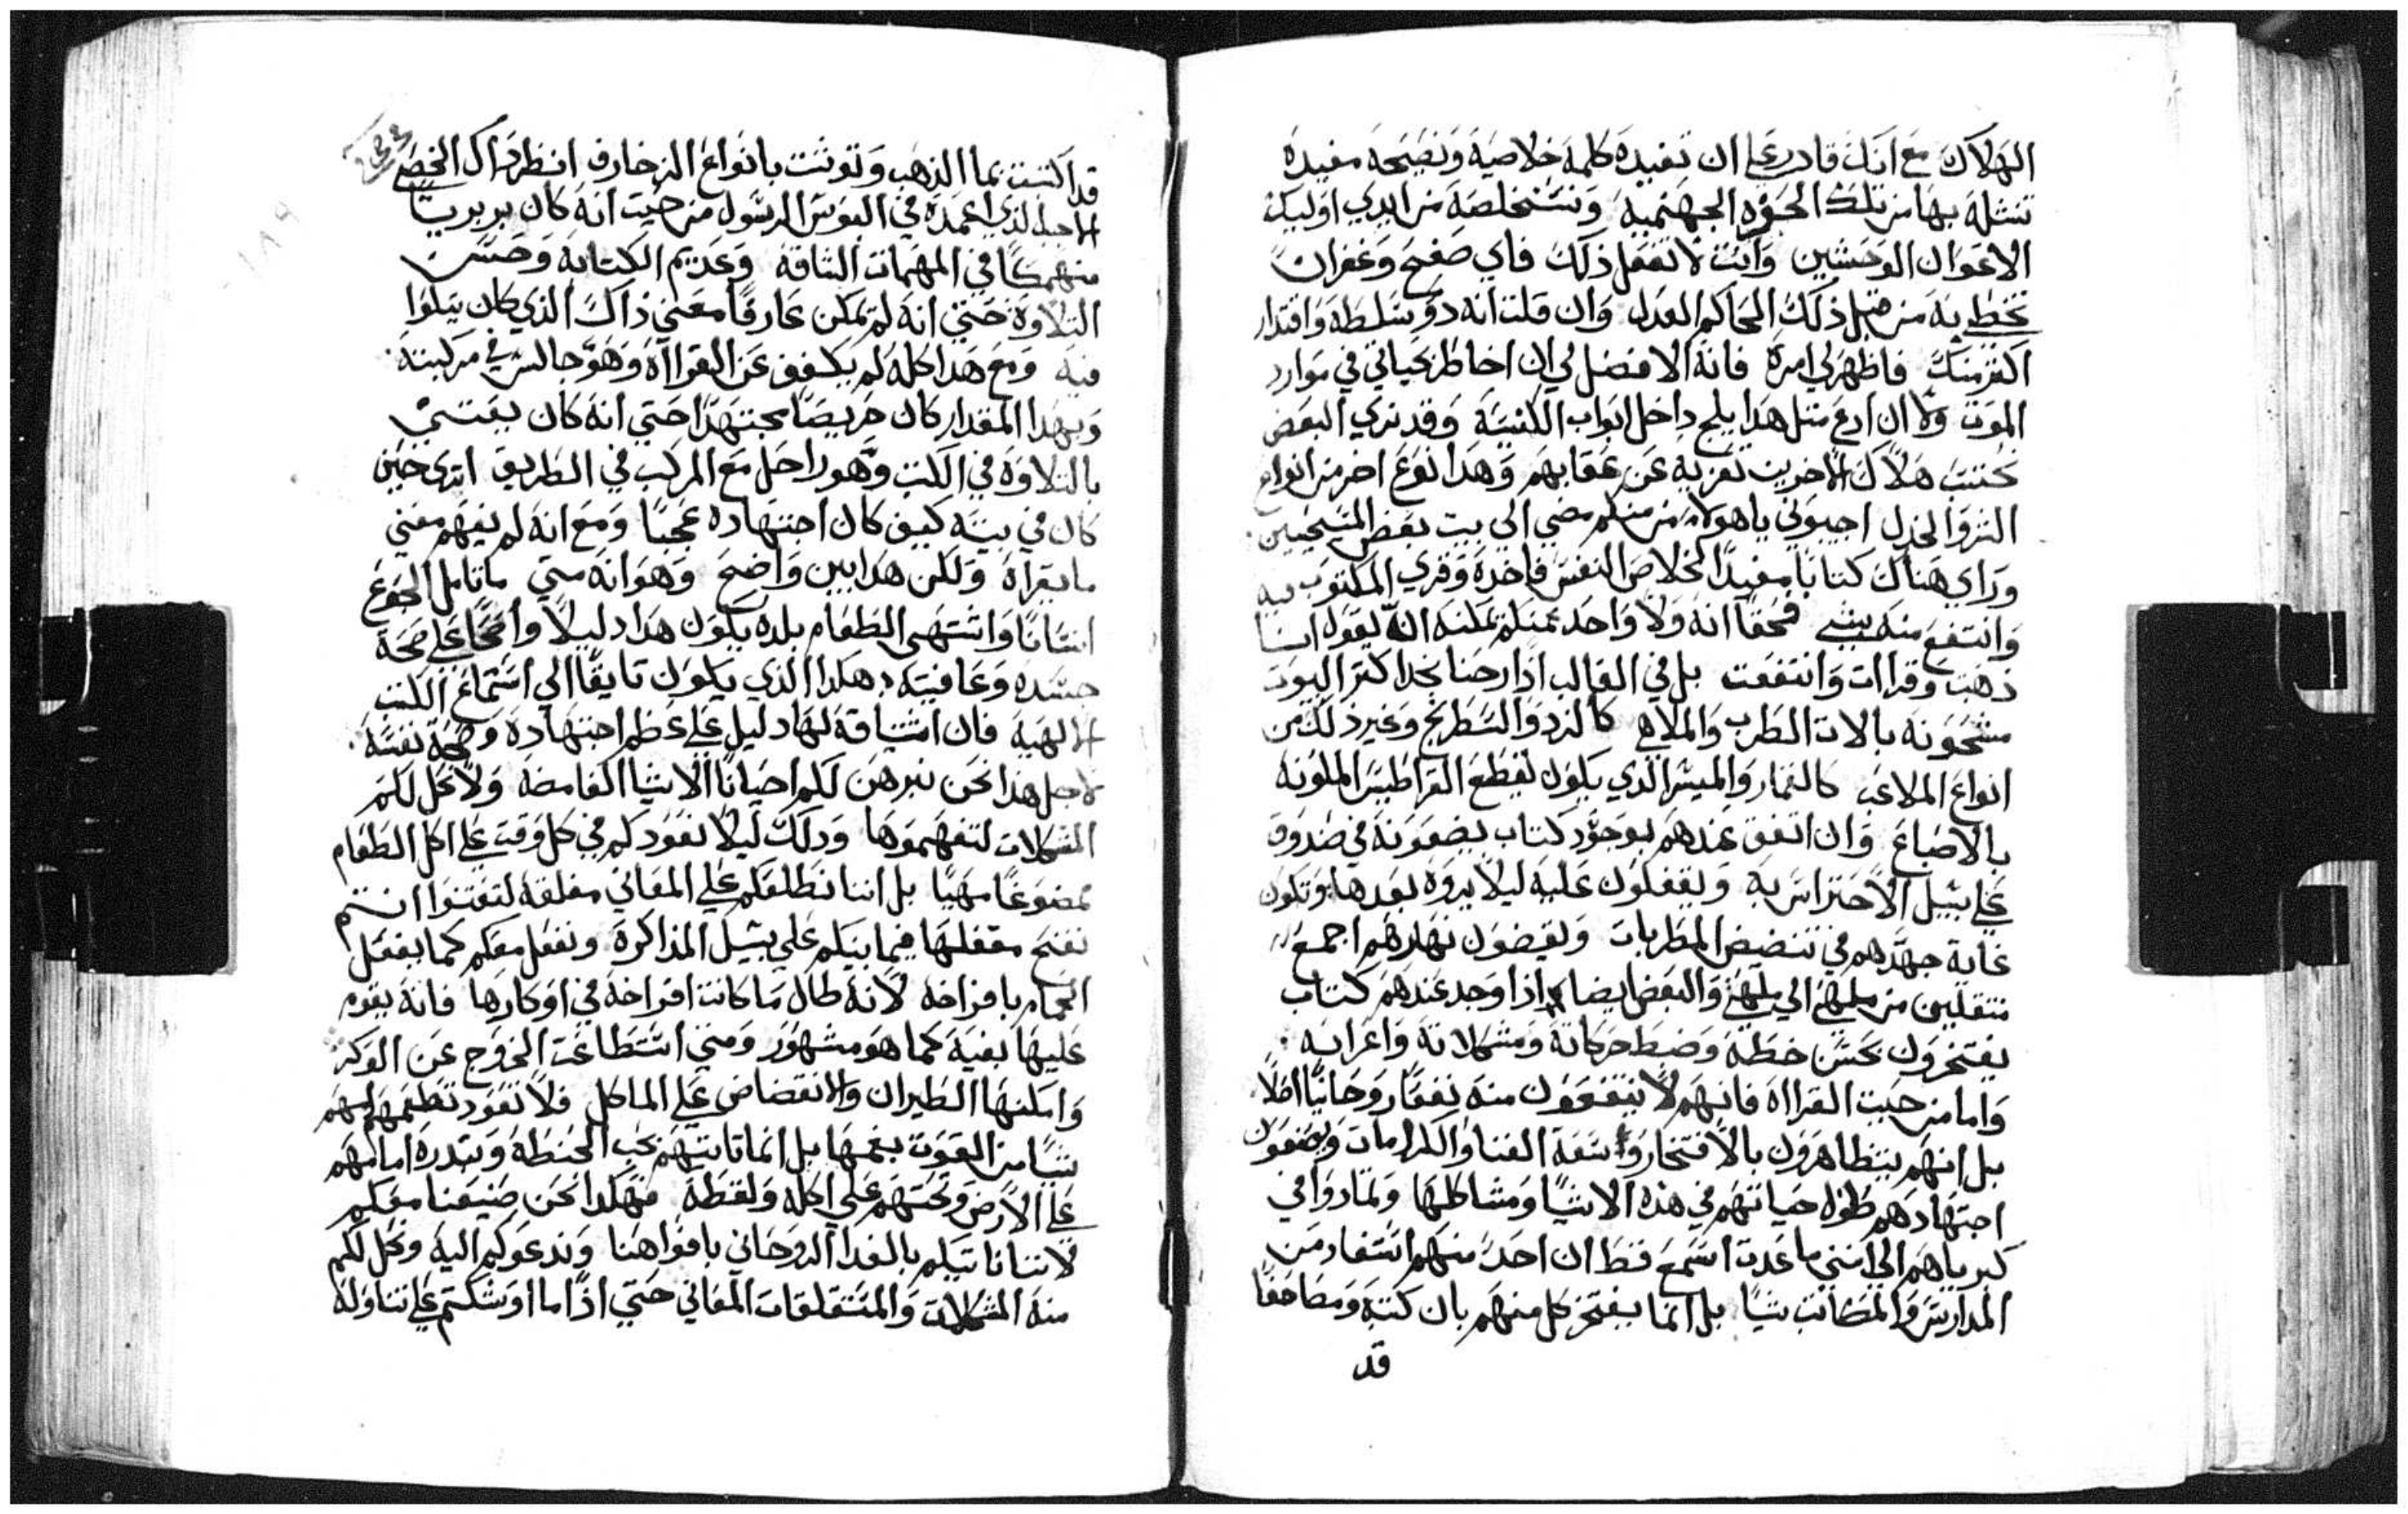 الهلاك مع انك قادر علي ان تفيده كلمة خلاصية ونصيحة مفيده
تنشله بها من تلك الحوه الجهنميه وتستخلصه من ايدي اوليك
الاعوان الوحشين وانت لا تفعل ذلك فاي صفح وغفران
تحظي به من قبل ذلك الحاكم العدل وان قلت انه ذو سلطة واقتدار
اكثر منك فاظهر لي امره فانه الافضل لي ان اخاطر بحياتي في موارد
الموت ولا ان ادع مثل هذا يلج داخل ابواب الكنيسة وقد نري البعض
هلاك الاخرين تعزية عن عقابهم وهذا نوع اخر من انواع
اجيبوني ياهولاء من منكم مضي الي بيت بعض المسيحيين
وراي هناك كتابا مفيدا لخلاص النفس فاخده وقري المكتوب فيه
وانتفع منه بشي فحقا انه ولا واحد منكم يمكنه ان يقول انا
ذهبت وقرات وانتفعت بل في الغالب اذا رحنا نجد اكثر البيوت
مشحونه بالات الطرب والملاهي كالنرد والشطرنج وغير ذلك من
انواع الملاعب كالقمار والميسر الذي يكون لقطع القراطيس الملونه
بالاصباغ وان اتفق عندهم بوجود كتاب يضعونه في صندوق
علي سبيل الاحتراس به ويقفلون عليه ليلا يروه بعدها وتكون
غاية جهدهم في المطربات ويقضون نهارهم اجمع
متنقلين من ملهي الي ملهي والبعض ايضا اذا وجد عندهم كتاب
يفتخرون بحسن خطه وضبط حركاته ومشكلاته واعرابه
واما من حيث القرااه فانهم لا ينتفعون منه نفعا روحانيا اصلا
بل انهم يتظاهرون بالافتخار وسعة الغنا والكرامات ويضعون
اجتهادهم طول حياتهم في هذه الاشيا ومشاكلها وتمادوا في
كبرياهم الي انني ما عدت اسمع قط ان احد منهم استفاد من
المدارس والمكاتب شيا بل انما يفتخر كل منهم بان كتبه ومصاحفا
قد
قد اكتتبت بما الذهب وتوشت بانواع الزخارف انظر ذاك الخصي
الحبشي الذي اعمده فيلبوس الرسول من حيث انه كان بربريا
منهمكا في المهمات الشاقة وعديم الكتابة وحسن
التلاوة حتي انه لم يكن عارفا معني ذاك الذي كان يتلوا
فيه ومع هذا كله لم يكفف عن القرااه وهو جالس في مركبته
وبهذا المقدار كان حريصا مجتهدا حتي انه كان يعتني
بالتلاوة في الكتب وهو راحل مع المركب في الطريق اتري حين
كان في بيته كيف كان اجتهاده عجبا ومع انه لم يفهم معني
ما يقراه ولكن هذا بين واضح وهو انه متي ما تامل الجوع
انسانا واشتهي الطعام بلده يكون هذا دليلا واضحا علي صحة
جسده وعافيته هكذا الذي يكون تايقا الي استماع الكتب
الالهيه فان اشتياقه لها دليل علي عظم اجتهاده وصحة نفسه
لاجل هذا نحن نبرهن لكم احيانا الاشيا الغامضة ولا نحل لكم
المشكلات لتفهموها وذلك ليلا نعودكم في كل وقت علي اكل الطعام
ممضوغا مهيا بل اننا نطلعكم علي المعاني مغلقة لتعتنوا انتم
تفتح مقفلها فيما بينكم علي سبيل المذاكرة ونفعل معكم كما يفعل
الحمام بافراخه لانه طال ما كانت افراخه في اوكارها فانه يقوم
عليها بفيه كما هو مشهور ومتي استطاعت الخروج عن الوكر
وامكنها الطيران والانقضاض علي الماكل فلا تعود تطعمهم
شيا من القوت بفمها بل انما تاتيهم بحب الحنطة وتبدره امامهم
علي الارض وتحتهم علي اكله ولقطه فهكذا نحن صنيعنا معكم
لاننا ناتيكم بالغدا الروحاني بافواهنا وندعوكم اليه ونحل لكم
منه المشكلات والمستغلقات المعاني حتي اذا ما اوشكتم علي تناوله